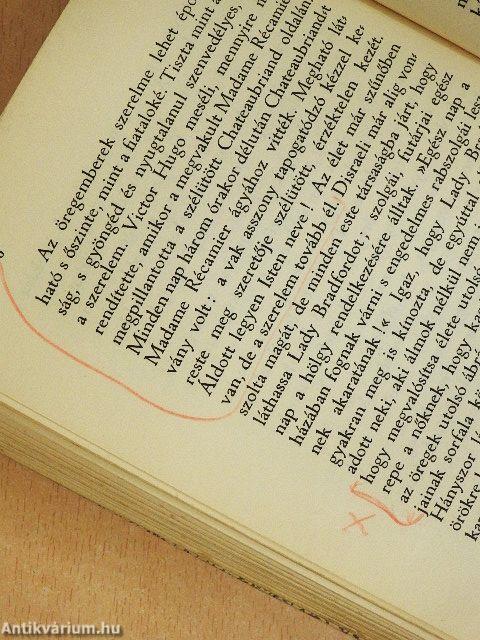 Az öregemberek szerelme lehet épo
ható s őszinte, mint a fiataloké. Tiszta mint a
ság, s gyöngéd és nyugtalanul szenvedélyes,
a szerelem. Victor Hugo meséli, mennyire m
rendítette, amikor a megvakult Madame Récamie
megpillantotta a szélütött Chateaubriand oldalán
Minden nap három órakor délután Chateaubriandt
Madame Récamier ágyához vitték. Megható lát-
vány volt: a vak asszony tapogatódzó kézzel ke-
reste meg szeretője szélütött érzéktelen kezét.
Áldott legyen Isten neve! Az élet már szűnőben
van, de a szerelem tovább él. Disraeli már alig von-
szolta magát, de minden este társaságba járt, hogy
láthassa Lady Bradfordot; szolgái, futárjai egész
nap a hölgy rendelkezésére álltak. »Egész nap a
házában fognak várni s engedelmes rabszolgái les
nek akaratának!« Igaz, hogy Lady Br
gyakran meg is kínozta, de egyúttal
adott neki, aki álmok nélkül nem
hogy megvalósítsa élete utolsó
repe a nőknek, hogy ka
az öregek utolsó ábr
jainak sorfala kö
Hányszor l
örökre l
ka
Antikvárium.hu